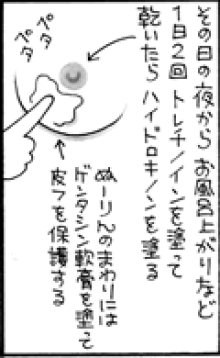 その日の夜から お風呂上がりなど
1日2回 トレチノインを塗って
乾いたら ハイドロキノンを塗る
ペタ
ペタ
ぬーりんのまわりには
ゲンタシン軟膏を塗って
皮フを保護する